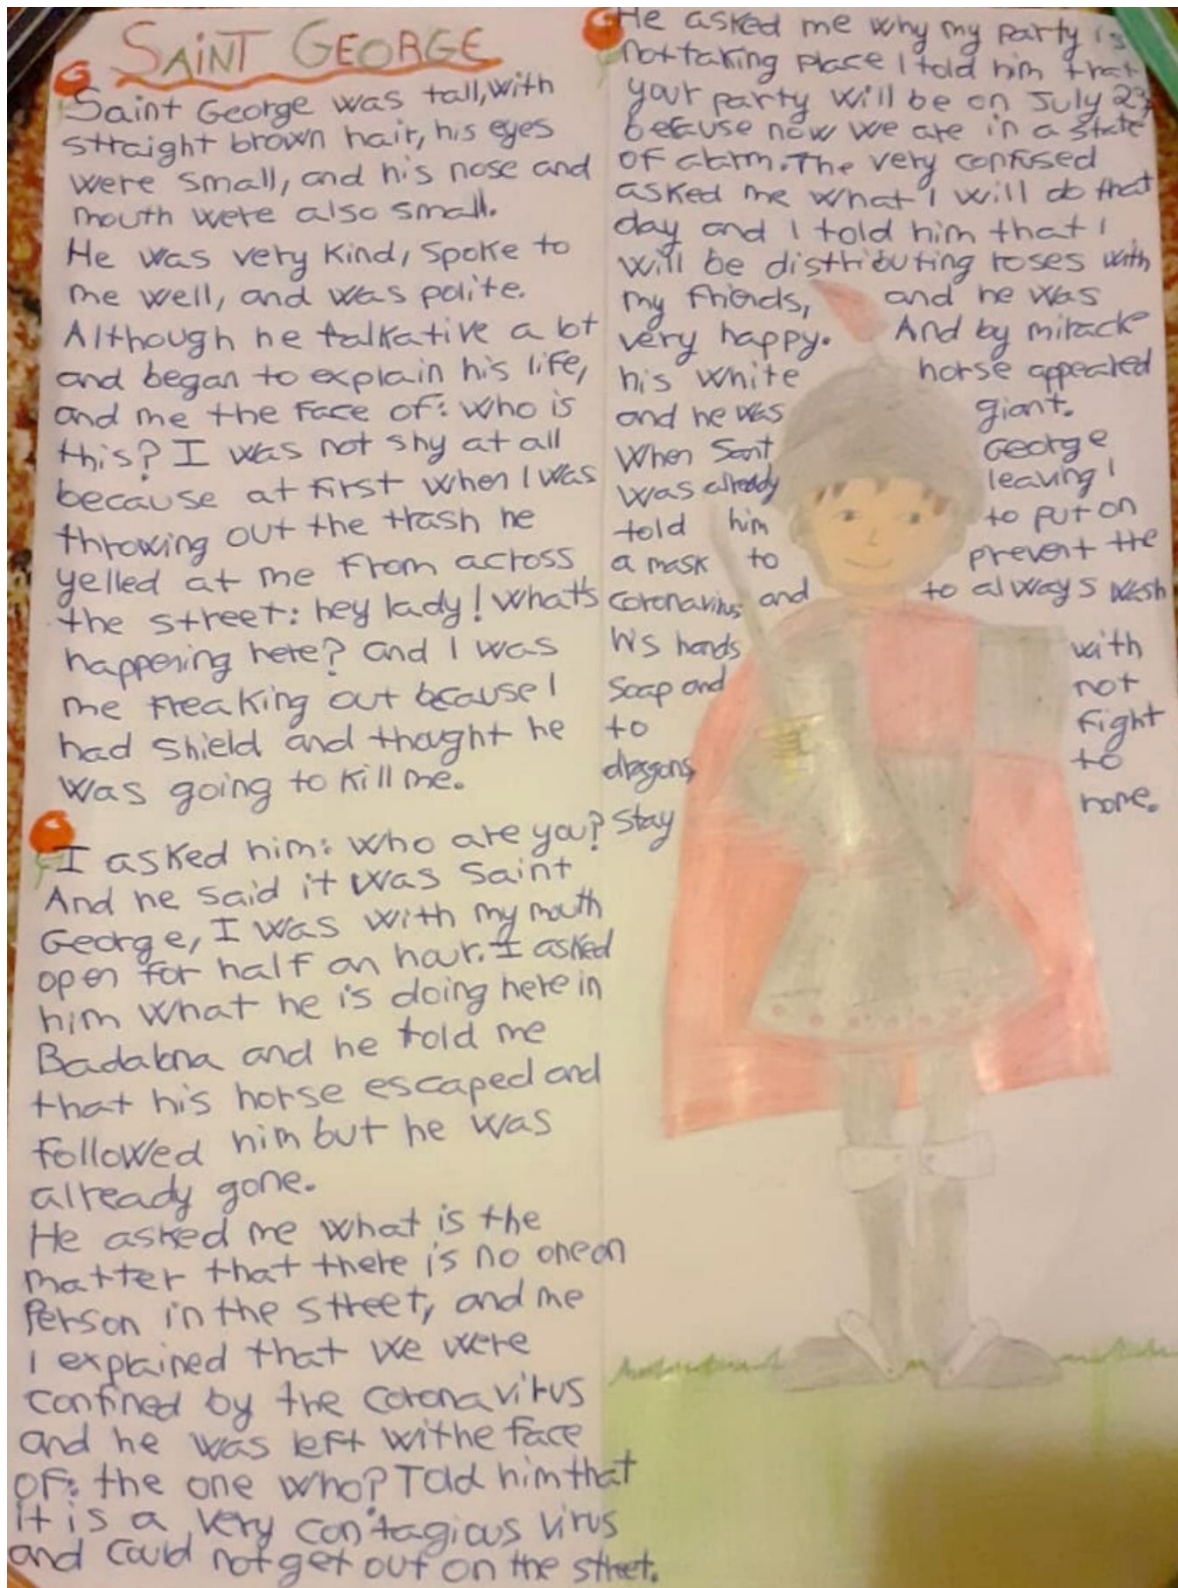 SAINT GEORGE
Saint George was tall, with
straight brown hair, his eyes
were small, and his nose and
mouth were also small.
He was very kind, spoke to
me well, and was polite.
Although he talkative a lot
and began to explain his life,
and me the face of: who is
this? I was not shy at all
because at first when I was
throwing out the trash he
yelled at me from across
the street: hey lady! what's
happening here? and I was
me freaking out bcause I
had shield and thought he
was going to kill me.
I asked him: who are you?
And he said it was Saint
George, I was with my mouth
open for half an hour. I asked
him what he is doing here in
Badalona and he told me
that his horse escaped and
followed him but he was
already gone.
He asked me what is the
matter that there is no one on
Person in the street, and me
I explained that we were
confined by the coronavirus
and he was left withe face
of: the one who? Told him that
it is a very contagious virus
and could not get out on the street.
He asked me why my party is
not taking place I told him that
your party will be on July 23,
because now we are in a state
of alarm. The very confused
asked me what I will do that
day and I told him that I
will be distributing roses with
my friends, and he was
very happy. And by miracle
his white horse appeared
and he was giant.
When Saint George
was already leaving I
told him to put on
a mask to prevent the
coronavirus and to always wash
his hands with
soap and not
to fight
dragons, to
stay home.